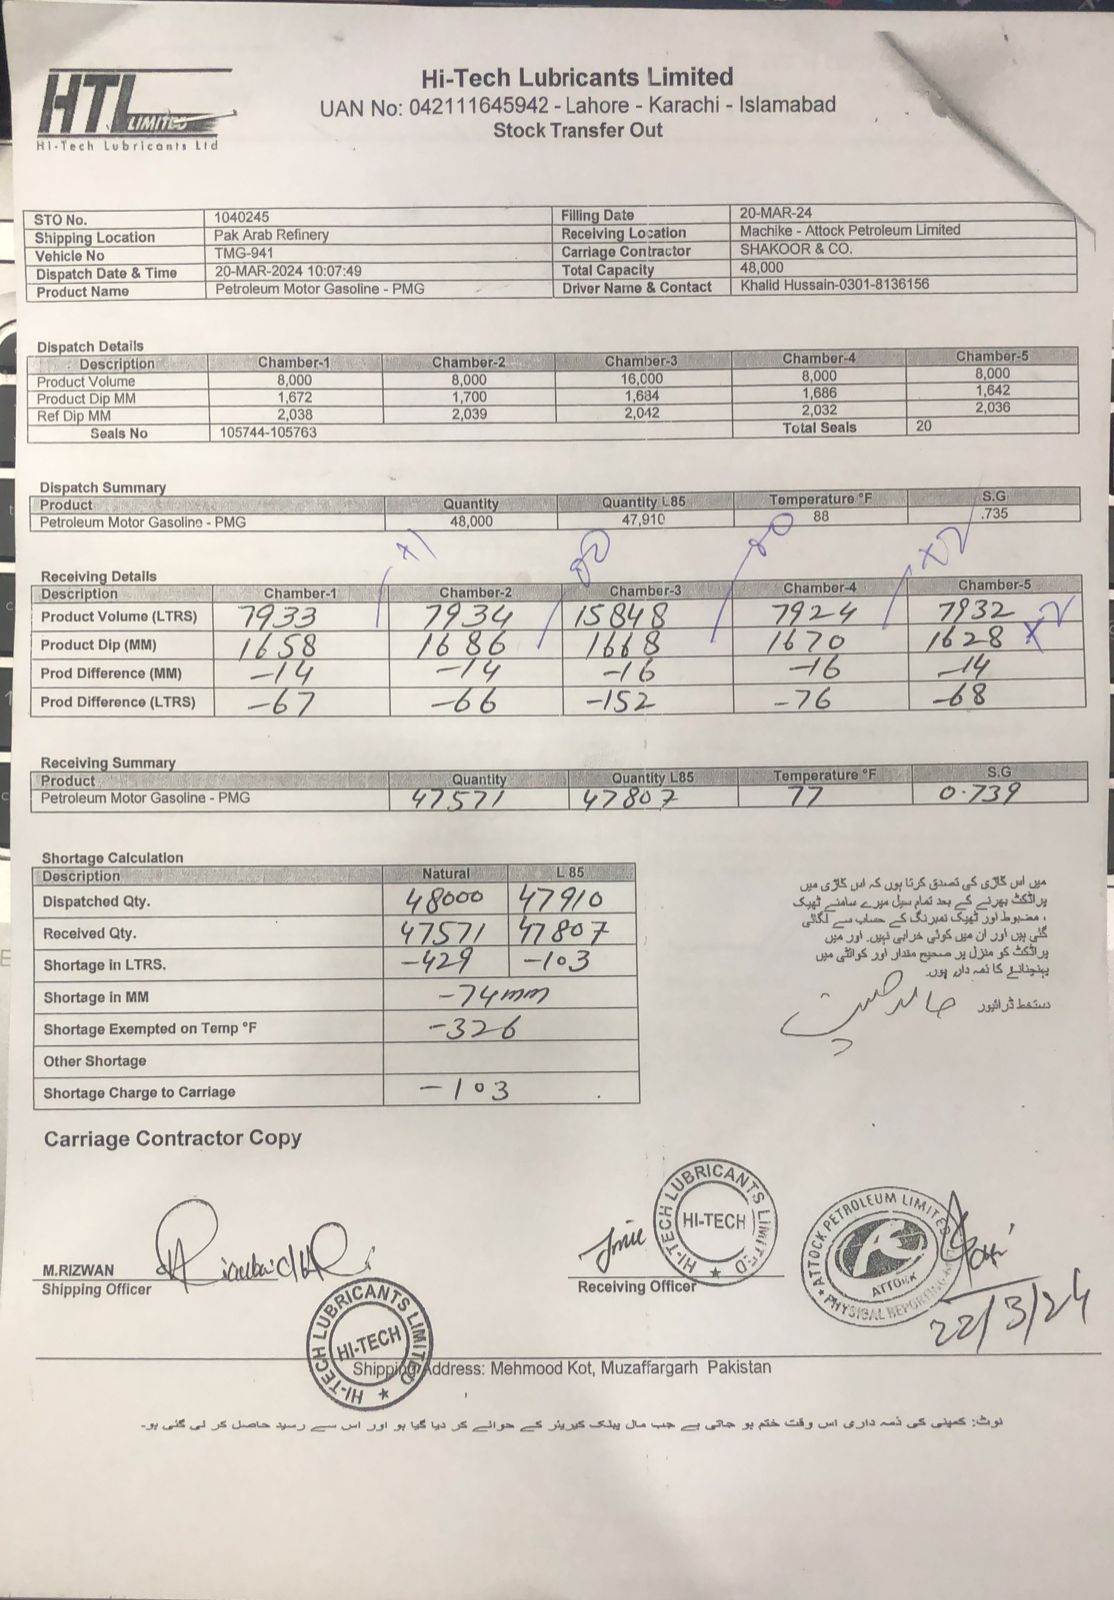 HTL
LIMITED
Hi-Tech Lubricants Ltd
Hi-Tech Lubricants Limited
UAN No: 042111645942 - Lahore - Karachi - Islamabad
Stock Transfer Out
STO No. 1040245 Filling Date 20-MAR-24
Shipping Location Pak Arab Refinery Receiving Location Machike - Attock Petroleum Limited
Vehicle No TMG-941 Carriage Contractor SHAKOOR & CO.
Dispatch Date & Time 20-MAR-2024 10:07:49 Total Capacity 48,000
Product Name Petroleum Motor Gasoline - PMG Driver Name & Contact Khalid Hussain-0301-8136156
Dispatch Details
Description Chamber-1 Chamber-2 Chamber-3 Chamber-4 Chamber-5
Product Volume 8,000 8,000 16,000 8,000 8,000
Product Dip MM 1,672 1,700 1,684 1,686 1,642
Ref Dip MM 2,038 2,039 2,042 2,032 2,036
Seals No 105744-105763 Total Seals 20
Dispatch Summary
Product Quantity Quantity L85 Temperature °F S.G
Petroleum Motor Gasoline - PMG 48,000 47,910 88 .735
Receiving Details
Description Chamber-1 Chamber-2 Chamber-3 Chamber-4 Chamber-5
Product Volume (LTRS) 7933 7934 15848 7924 7932
Product Dip (MM) 1658 1686 1668 1670 1628
Prod Difference (MM) -14 -14 -16 -16 -14
Prod Difference (LTRS) -67 -66 -152 -76 -68
Receiving Summary
Product Quantity Quantity L85 Temperature °F S.G
Petroleum Motor Gasoline - PMG 47571 47807 77 0.739
Shortage Calculation
Description Natural L 85
Dispatched Qty. 48000 47910
Received Qty. 47571 47807
Shortage in LTRS. -429 -103
Shortage in MM -74mm
Shortage Exempted on Temp °F -326
Other Shortage
Shortage Charge to Carriage -103
میں اس گاڑی کی تصدق کرتا ہوں کہ اس گاڑی میں
پراڈکٹ بھرنے کے بعد تمام سیل میرے سامنے ٹھیک
، مضبوط اور ٹھیک نمبرنگ کے حساب سے لگائی
گئی ہیں اور ان میں کوئی خرابی نہیں۔ اور میں
پراڈکٹ کو منزل پر صحیح مقدار اور کوالٹی میں
پہنچانے کا ذمہ دار ہوں۔
دستخط ڈرائیور
Carriage Contractor Copy
M.RIZWAN
Shipping Officer
Receiving Officer
HI-TECH LUBRICANTS LIMITED
HI-TECH
ATTOCK PETROLEUM LIMITED
ATTOCK
22/3/24
HI-TECH LUBRICANTS LIMITED
HI-TECH
Shipping Address: Mehmood Kot, Muzaffargarh Pakistan
نوٹ: کمپنی کی ذمہ داری اس وقت ختم ہو جاتی ہے جب مال پبلک کیریئر کے حوالے کر دیا گیا ہو اور اس سے رسید حاصل کر لی گئی ہو۔